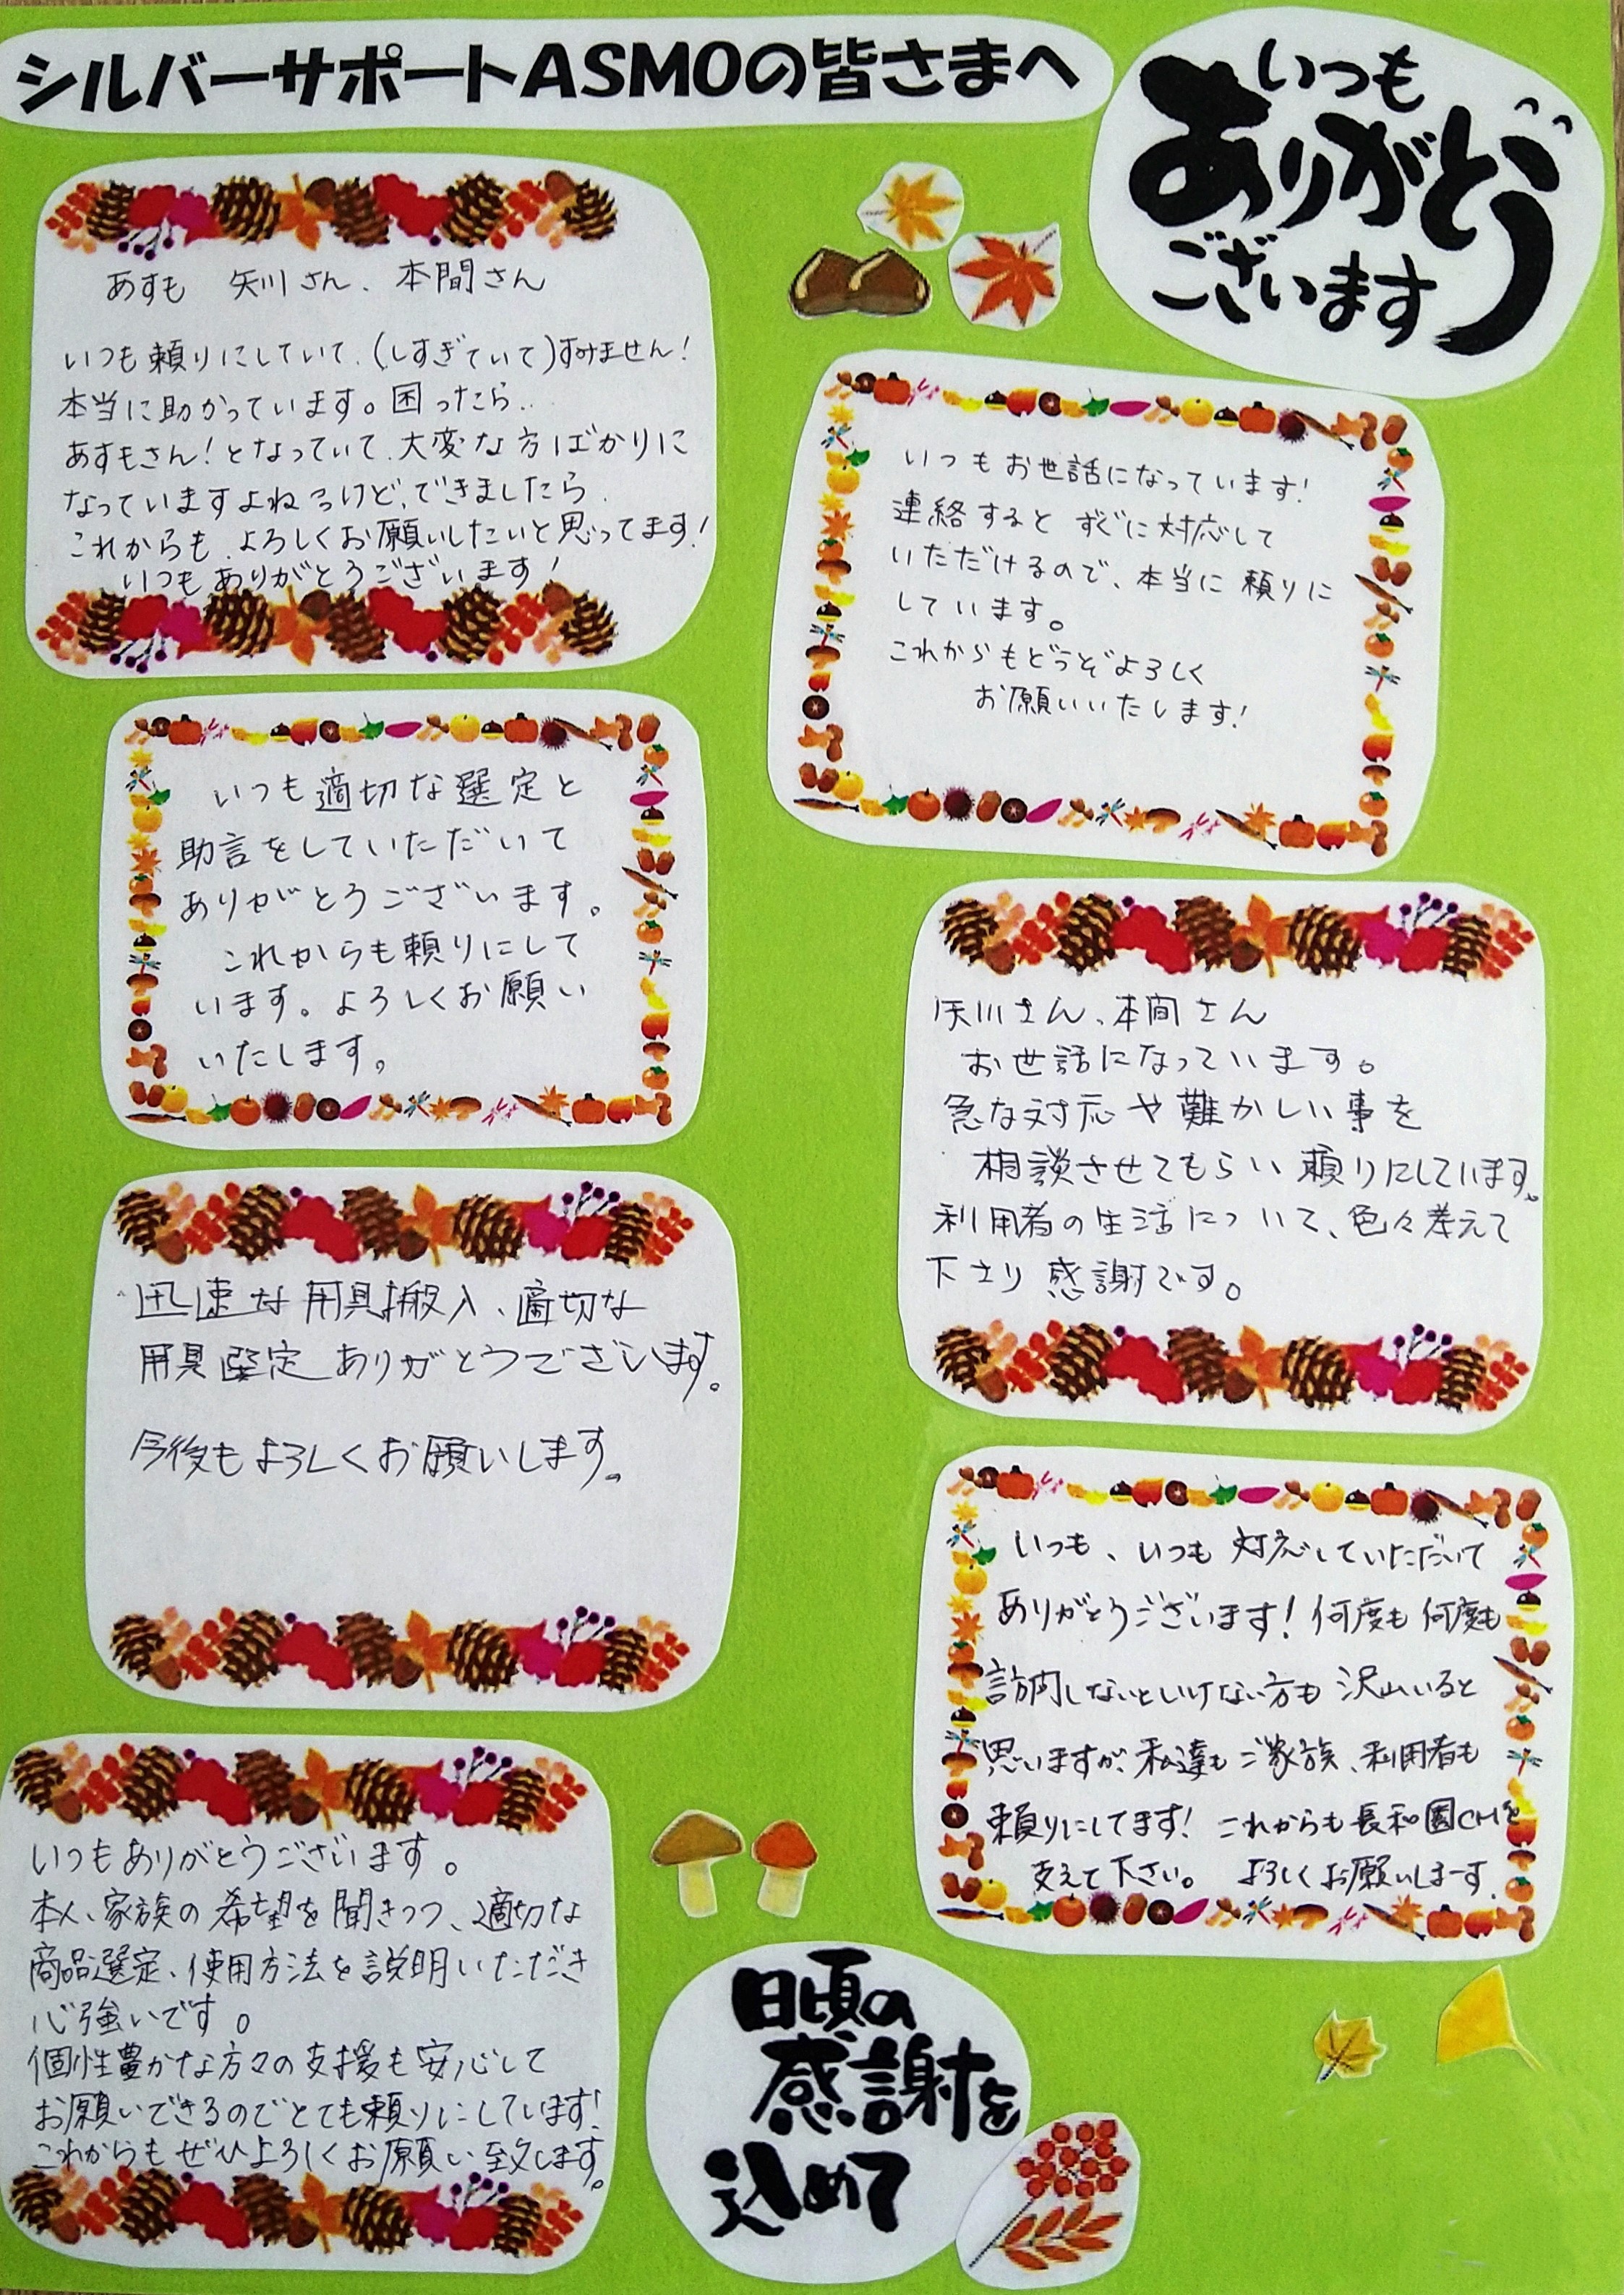 シルバーサポートASMOの皆さまへ
いつも
ありがとう
ございます
あすも 矢川さん、本間さん
いつも頼りにしていて、(しすぎていて)すみません!
本当に助かっています。困ったら…
あすもさん!となっていて、大変な方ばかりに
なっていますよね…けど、できましたら、
これからも、よろしくお願いしたいと思ってます!
いつもありがとうございます!
いつもお世話になっています!
連絡するとすぐに対応して
いただけるので、本当に頼りに
しています。
これからもどうぞよろしく
お願いいたします!
いつも適切な選定と
助言をしていただいて
ありがとうございます。
これからも頼りにして
います。よろしくお願い
いたします。
矢川さん、本間さん
お世話になっています。
急な対応や難かしい事を
相談させてもらい頼りにしています。
利用者の生活について、色々考えて
下さり感謝です。
迅速な用具搬入、適切な
用具選定ありがとうございます。
今後もよろしくお願いします。
いつも、いつも対応していただいて
ありがとうございます!何度も何度も
訪問しないといけない方も沢山いると
思いますが、私達もご家族、利用者も
頼りにしてます!これからも長和園CMを
支えて下さい。よろしくお願いします。
いつもありがとうございます。
本人、家族の希望を聞きつつ、適切な
商品選定、使用方法を説明いただき
心強いです。
個性豊かな方々の支援も安心して
お願いできるのでとても頼りにしています!
これからもぜひよろしくお願い致します。
日頃の
感謝を
込めて